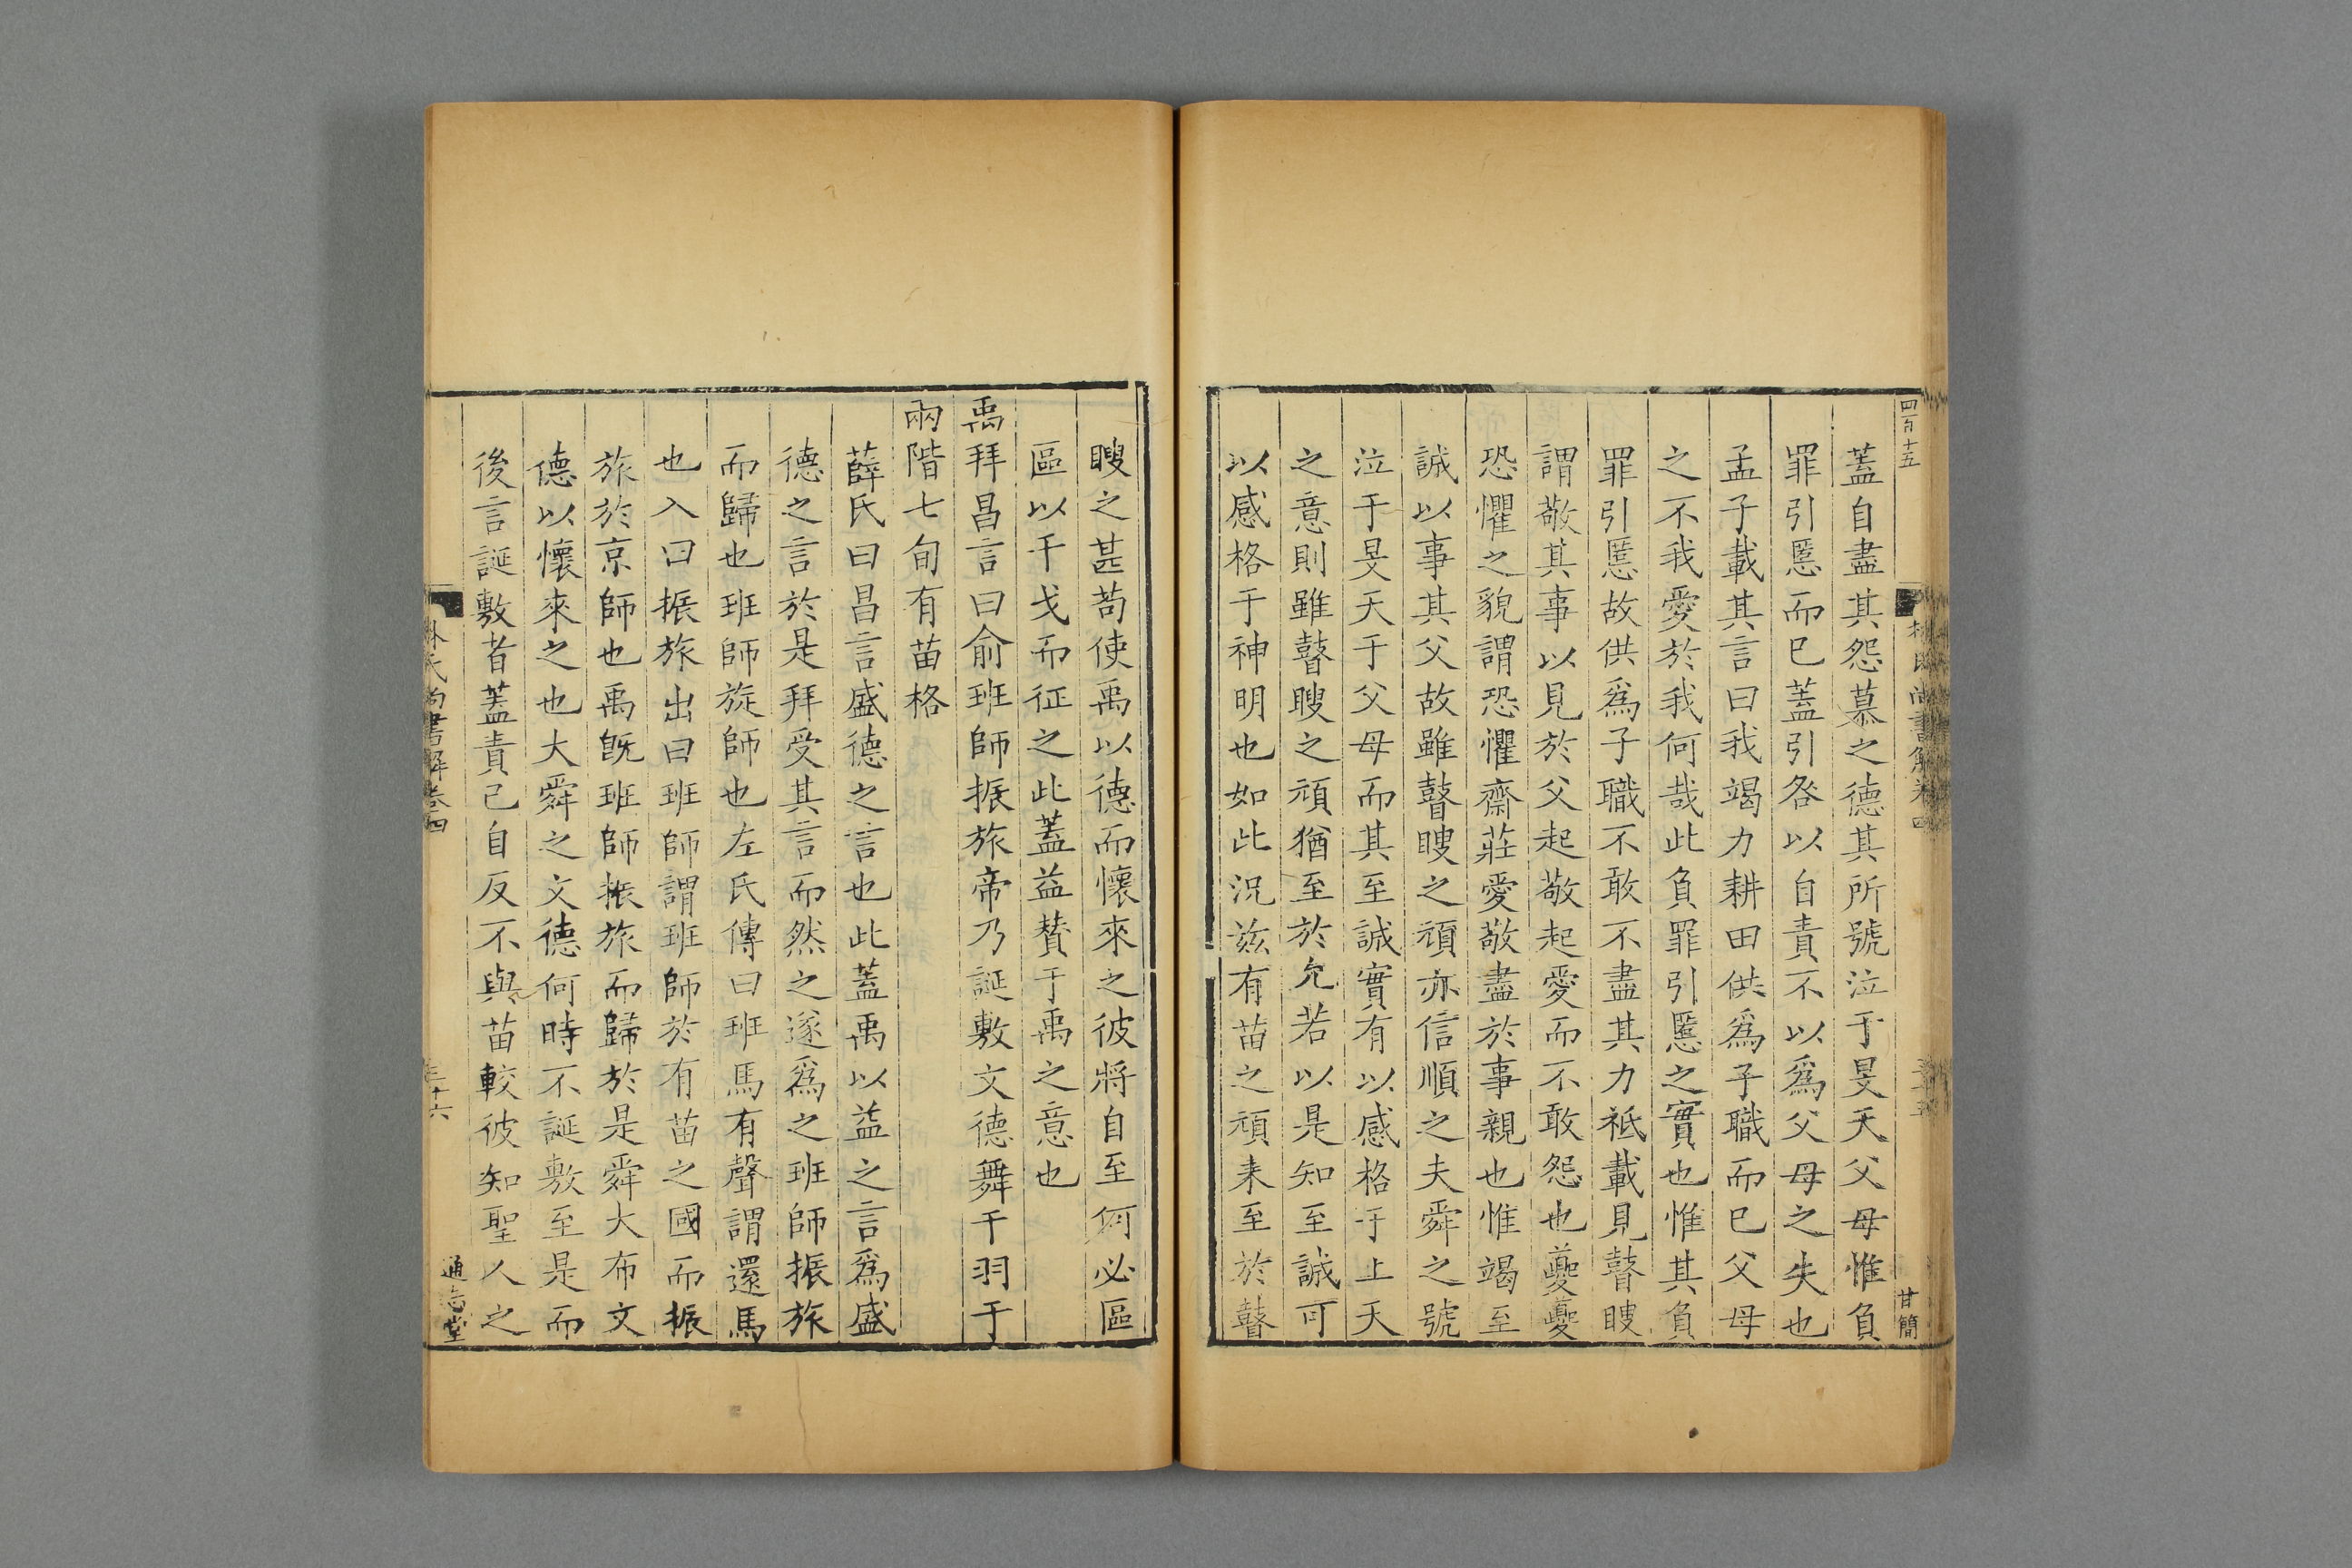 四百十五
林氏尚書解卷四
甘簡
蓋自盡其怨慕之德其所號泣于旻天父母惟負
罪引慝而已蓋引咎以自責不以爲父母之失也
孟子載其言曰我竭力耕田供爲子職而已父母
之不我愛於我何哉此負罪引慝之實也惟其負
罪引慝故供爲子職不敢不盡其力祗載見瞽瞍
謂敬其事以見於父起敬起愛而不敢怨也夔夔
恐懼之貌謂恐懼齋莊愛敬盡於事親也惟竭至
誠以事其父故雖瞽瞍之頑亦信順之夫舜之號
泣于旻天于父母而其至誠實有以感格于上天
之意則雖瞽瞍之頑猶至於允若以是知至誠可
以感格于神明也如此况兹有苗之頑未至於瞽
瞍之甚苟使禹以德而懷來之彼將自至何必區
區以干戈而征之此蓋益賛于禹之意也
禹拜昌言曰俞班師振旅帝乃誕敷文德舞干羽于
兩階七旬有苗格
薛氏曰昌言盛德之言也此蓋禹以益之言爲盛
德之言於是拜受其言而然之遂爲之班師振旅
而歸也班師旋師也左氏傳曰班馬有聲謂還馬
也入曰振旅出曰班師謂班師於有苗之國而振
旅於京師也禹旣班師振旅而歸於是舜大布文
德以懷來之也大舜之文德何時不誕敷至是而
後言誕敷者蓋責己自反不與苗較彼知聖人之
林氏尚書解卷四
三十六
通志堂